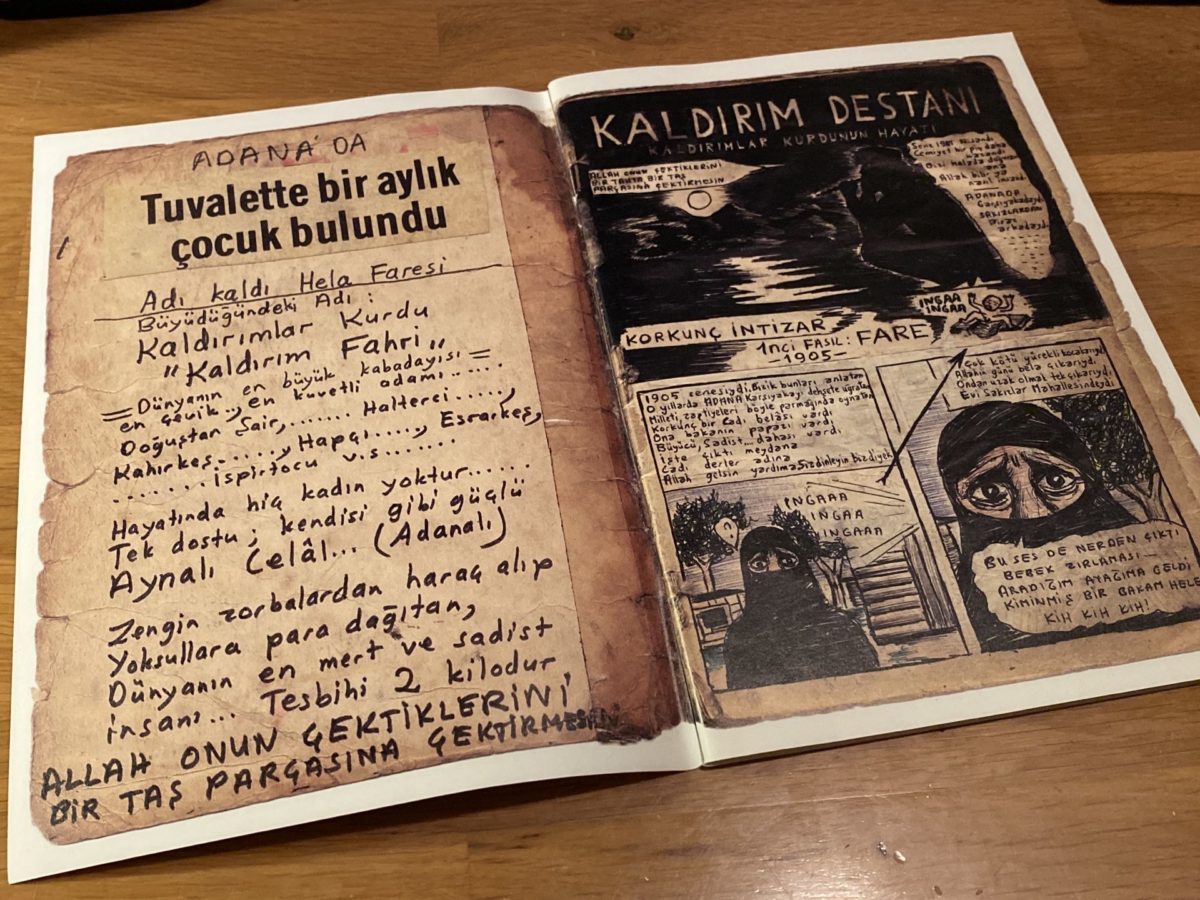 ADANA'DA
Tuvalette bir aylık
çocuk bulundu
Adı kaldı Hela Faresi
Büyüdüğündeki Adı :
Kaldırımlar Kurdu
"Kaldırım Fahri"
=Dünyanın en büyük kabadayısı=
en çevik.., en kuvetli adamı.....
Doğuştan Şair,...... Halterci.....,
Kahırkeş....., Hapçı...., Esrarkeş,
.......ispirtocu v.s......
Hayatında hiç kadın yoktur......
Tek dostu; kendisi gibi güçlü
Aynalı Celâl... (Adanalı)
Zengin zorbalardan haraç alıp
Yoksullara para dağıtan,
Dünyanın en mert ve sadist
insanı... Tesbihi 2 kilodur
ALLAH ONUN ÇEKTİKLERİNİ
BİR TAŞ PARÇASINA ÇEKTİRMESİN
KALDIRIM DESTANI
KALDIRIMLAR KURDUNUN HAYATI
ALLAH ONUN ÇEKTİKLERİNİ
BİR TAHTA BİR TAŞ
PARÇASINA ÇEKTİRMESİN
Allah bilir ya
ADANADA
Karşıyakadaydı
INGAA
INGAA
KORKUNÇ İNTİZAR
1nci FASIL: FARE
-1905-
1905 senesiydi. Bizik bunları anlatan
O yıllarda ADANA Karşıyakayı dehşete uğratan
Milleti, zaptiyeleri böyle parmağında oynatan
Korkunç bir Cadı belâsı vardı
Ona bakanın papazı vardı
Büyücü, Sadist... dahası vardı
İşte çıktı meydana
Cadı derler adına
Allah gelsin yardıma Siz dinleyin biz diyek
INGAAA
INGAA
INGAAA
Çok kötü yürekli kocakarıydı
Allahın günü belâ çıkarıydı
Ondan uzak olmak tek çıkarıydı
Evi Sakırlar Mahallesindeydi
BU SES DE NERDEN ÇIKTI
BEBEK ZIRLAMASI—
ARADIĞIM AYAĞIMA GELDİ
KİMİNMİŞ BİR BAKAM HELE
KİH KİH KİH!